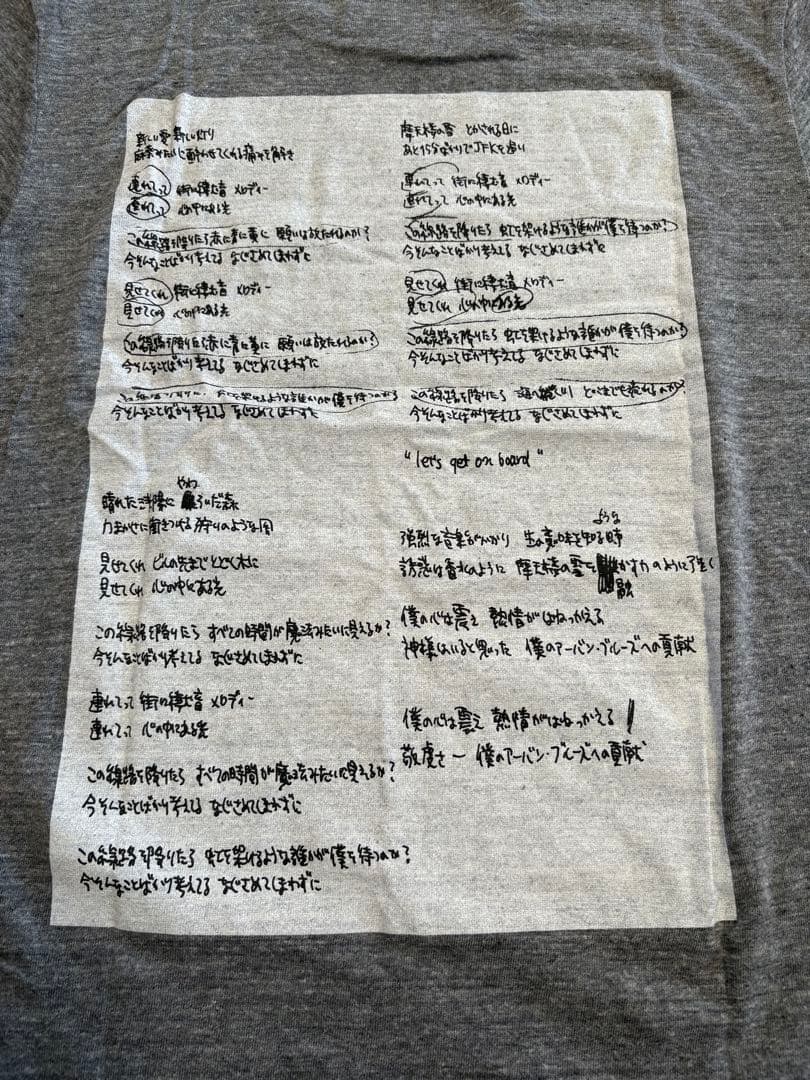 新しい愛 新しい灯り
麻薬みたいに酔わせてくれる痛みを解き
連れてって 街に待む音 メロディー
連れてって 心の中にある光
この線路を降りたら赤に青に黄に 願いは放たれるのか?
今そんなことばかり考えてる なぐさめてしまわずに
見せてくれ 街に待む音 メロディー
見せてくれ 心の中にある光
この線路を降りたら赤に青に黄に 願いは放たれるのか?
今そんなことばかり考えてる なぐさめてしまわずに
この線路を降りたら 虹を架けるような誰かが僕を待つのか?
今そんなことばかり考えてる なぐさめてしまわずに
やわ
晴れた
力まかせに吹きつける 狩りのような風
見せてくれ どんの先までとどく木に
見せてくれ 心の中にある光
この線路を降りたら すべての時間が魔法みたいに見えるか?
今そんなことばかり考えてる なぐさめてしまわずに
連れてって 街に待む音 メロディー
連れてって 心の中にある光
この線路を降りたら すべての時間が魔法みたいに見えるか?
今そんなことばかり考えてる なぐさめてしまわずに
この線路を降りたら 虹を架けるような誰かが僕を待つのか?
今そんなことばかり考えてる なぐさめてしまわずに
摩天楼の雪 とかされる日に
あと15分ばかりでJFKを通り
連れてって 街に待む音 メロディー
連れてって 心の中にある光
この線路を降りたら 虹を架けるような誰かが僕を待つのか?
今そんなことばかり考えてる なぐさめてしまわずに
見せてくれ 街に待む音 メロディー
見せてくれ 心の中にある光
この線路を降りたら 虹を架けるような誰かが僕を待つのか?
今そんなことばかり考えてる なぐさめてしまわずに
この線路を降りたら どこまでも流れるのか?
今そんなことばかり考えてる なぐさめてしまわずに
"let's get on board"
ような
強烈な音楽がかかり 生の意味を知る時
誘惑は香水のように 摩天楼の雪を かす力のように強く
融
僕の心は震え 熱情がはねっかえる
神様はいると思った 僕のアーバン・ブルーズへの貢献
僕の心は震え 熱情がはねっかえる!
敬虔さ〜 僕のアーバン・ブルーズへの貢献